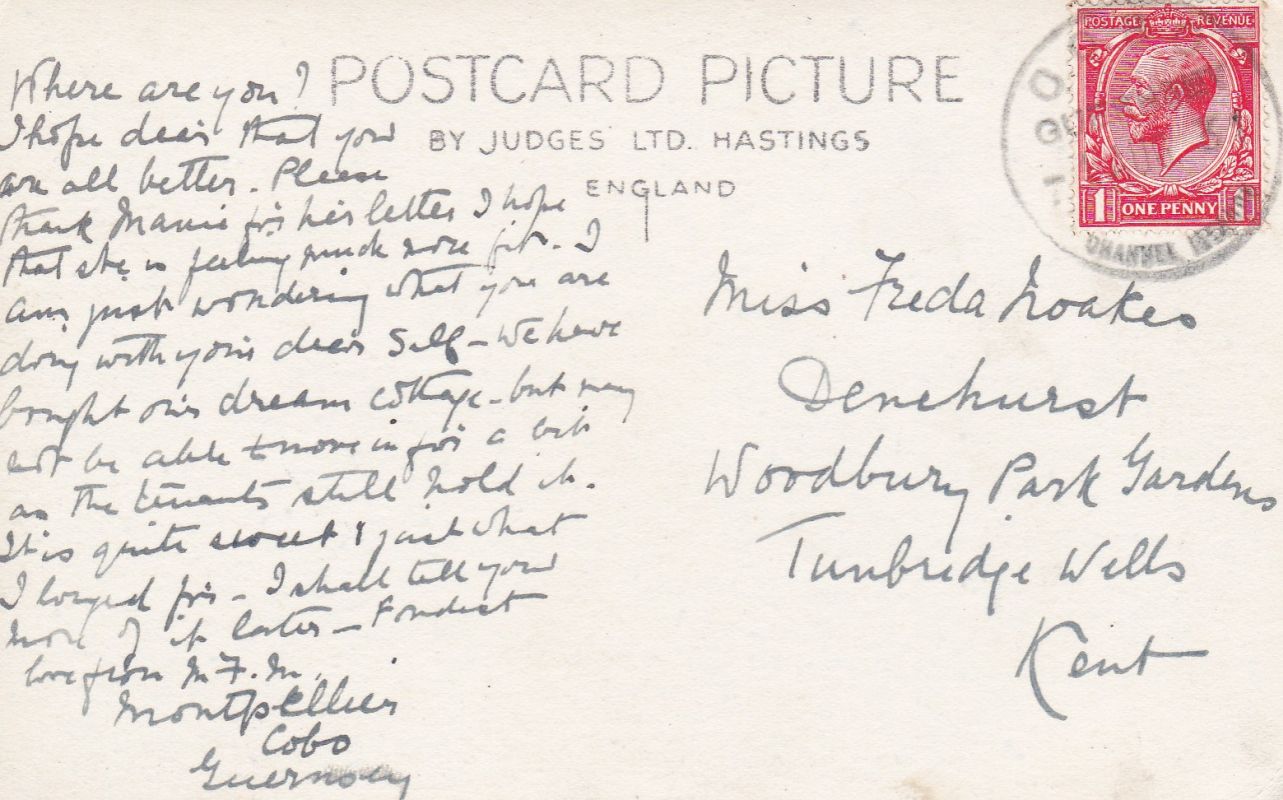 Where are you?
I hope dear that you
are all better. Please
thank Mamie for her letter I hope
that she is feeling much more fit. I
am just wondering what you are
doing with your dear Self - We have
bought our dream cottage - but may
not be able to move in for a bit
as the tenants still hold it.
It is quite sweet & just what
I longed for - I shall tell you
more of it later - Fondest
love from M.F.M.
Montpellier
Cobo
Guernsey
POSTCARD PICTURE
BY JUDGES LTD. HASTINGS
ENGLAND
POSTAGE REVENUE
1 ONE PENNY 1
CHANNEL
Miss Freda Noakes
Denehurst
Woodbury Park Gardens
Tunbridge Wells
Kent